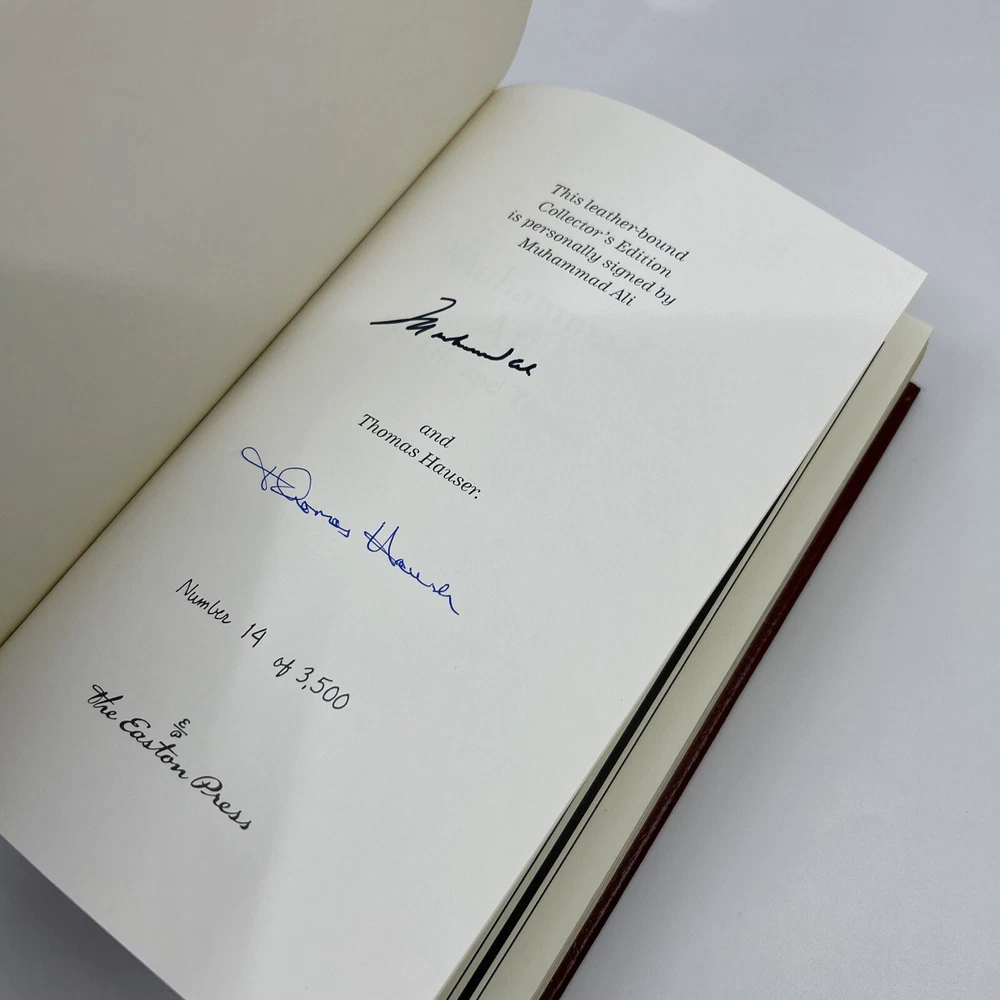 This leather-bound
Collector's Edition
is personally signed by
Muhammad Ali
Muhammad Ali
and
Thomas Hauser.
Thomas Hauser
Number 14 of 3,500
E/P
The Easton Press